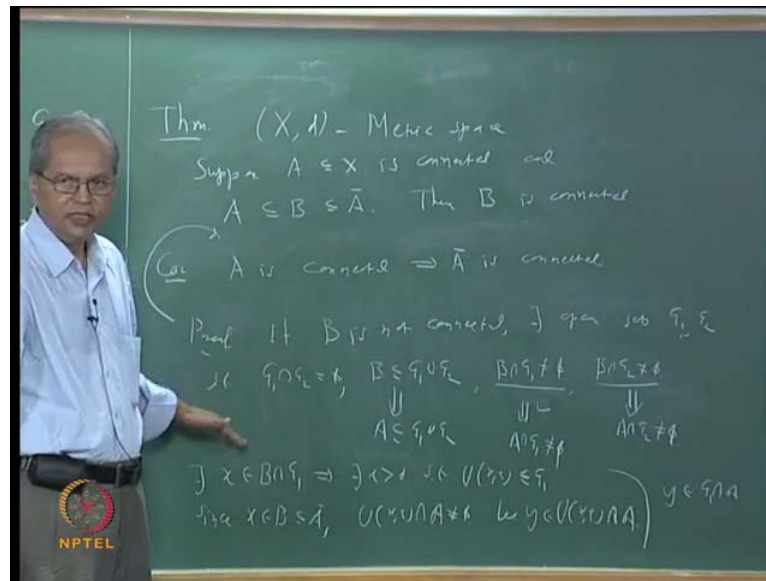 Thm. (X, d) - Metric space
Suppose A ⊆ X is connected and
A ⊆ B ⊆ Ā. Then B is connected
Cor A is connected ⇒ Ā is connected
Proof If B is not connected, ∃ open sets G₁, G₂
s.t. G₁∩G₂ = φ, B ⊆ G₁∪G₂, B∩G₁ ≠ φ, B∩G₂ ≠ φ
⇓ ⇓ ⇓
A ⊆ G₁∪G₂ A∩G₁ ≠ φ A∩G₂ ≠ φ
∃ x ∈ B∩G₁ ⇒ ∃ r>0 s.t. U(x,r) ⊆ G₁
Since x ∈ B ⊆ Ā, U(x,r)∩A ≠ φ. Let y ∈ U(x,r)∩A.
y ∈ G₁∩A
NPTEL